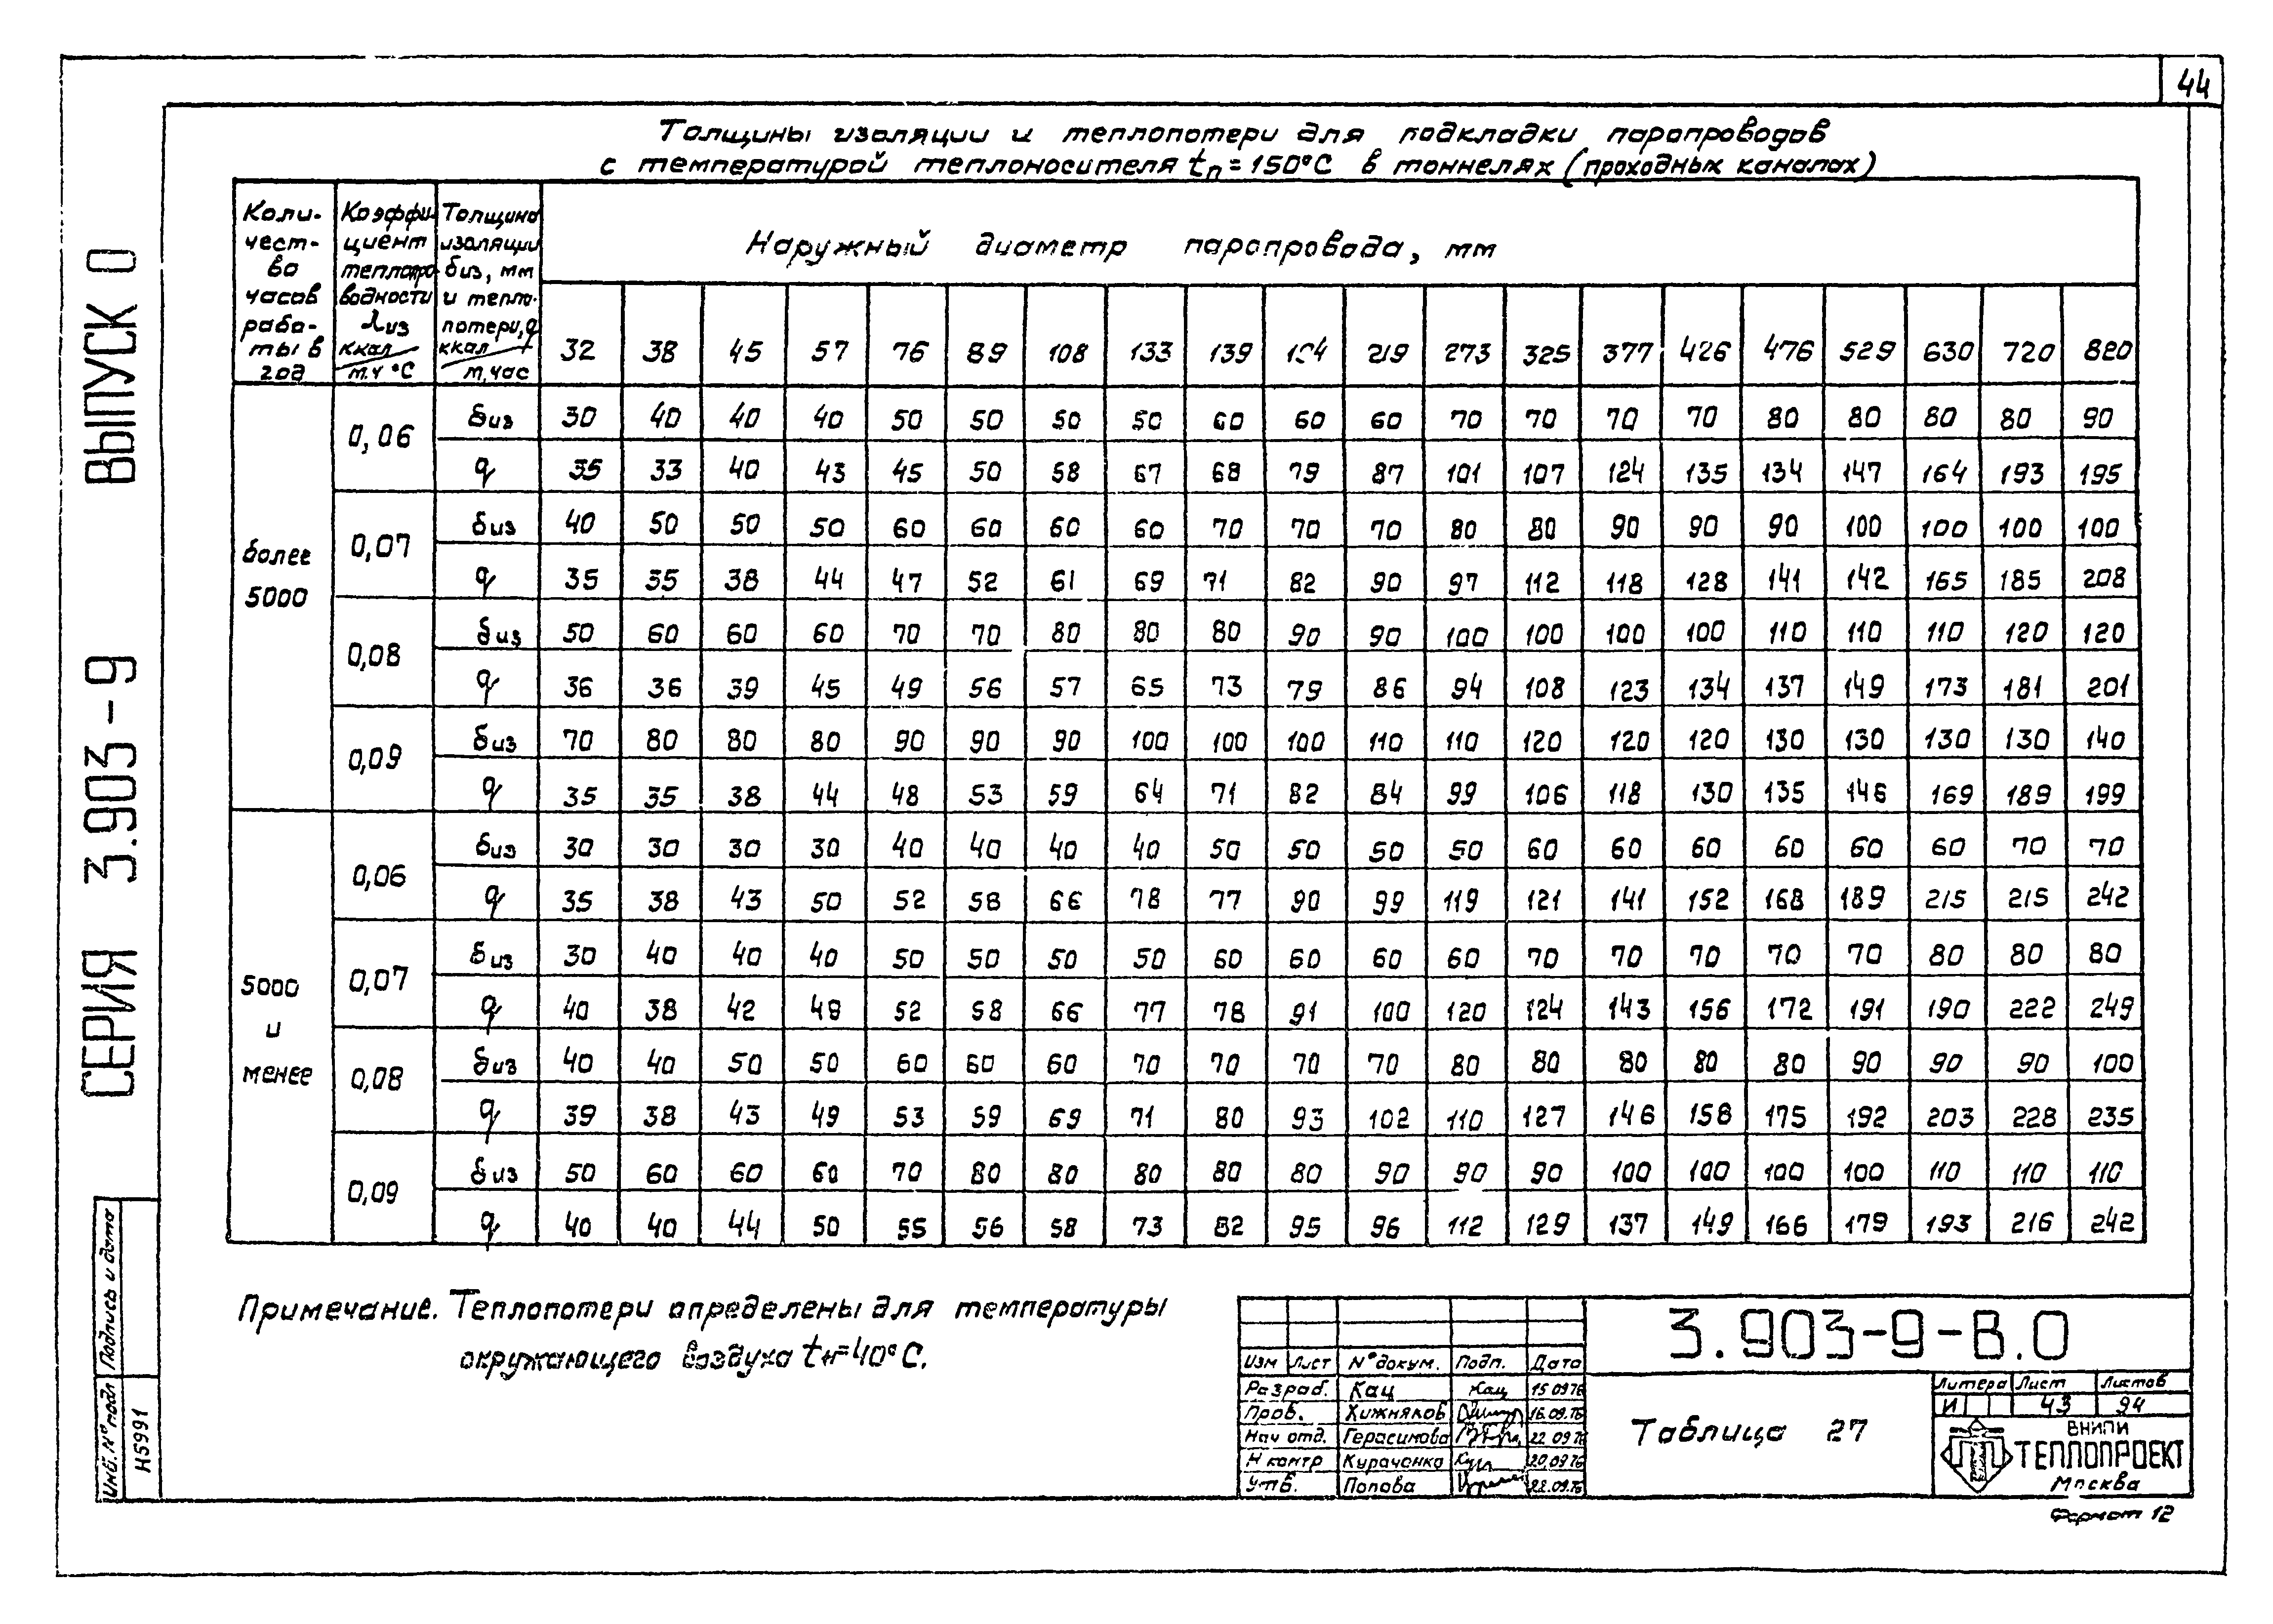 44
Толщины изоляции и теплопотери для подкладки паропроводов
с температурой теплоносителя tп=150°С в тоннелях (проходных каналах)
Количество часов работы в год | Коэффициент теплопроводности λиз ккал/м.ч °С | Толщина изоляции δиз, мм и теплопотери, q ккал/м,час | Наружный диаметр паропровода, мм
32 38 45 57 76 89 108 133 139 219 273 325 377 426 476 529 630 720 820
более 5000
0,06 δиз 30 40 40 40 50 50 50 50 60 60 60 70 70 70 70 80 80 80 80 90
q 35 33 40 43 45 50 58 67 68 79 87 101 107 124 135 134 147 164 193 195
0,07 δиз 40 50 50 50 60 60 60 60 70 70 70 80 80 90 90 90 100 100 100 100
q 35 35 38 44 47 52 61 69 71 82 90 97 112 118 128 141 142 165 185 208
0,08 δиз 50 60 60 60 70 70 80 80 80 90 90 100 100 100 100 110 110 110 120 120
q 36 36 39 45 49 56 57 65 73 79 86 94 108 123 134 137 149 173 181 201
0,09 δиз 70 80 80 80 90 90 90 100 100 100 110 110 120 120 120 130 130 130 130 140
q 35 35 38 44 48 53 59 64 71 82 84 99 106 118 130 135 146 169 189 199
5000 и менее
0,06 δиз 30 30 30 30 40 40 40 40 50 50 50 50 60 60 60 60 60 60 70 70
q 35 38 43 50 52 58 66 78 77 90 99 119 121 141 152 168 189 215 215 242
0,07 δиз 30 40 40 40 50 50 50 50 60 60 60 60 70 70 70 70 70 80 80 80
q 40 38 42 48 52 58 66 77 78 91 100 120 124 143 156 172 191 190 222 249
0,08 δиз 40 40 50 50 60 60 60 70 70 70 70 80 80 80 80 80 90 90 90 100
q 39 38 43 49 53 59 69 71 80 93 102 110 127 146 158 175 192 203 228 235
0,09 δиз 50 60 60 60 70 80 80 80 80 80 90 90 90 100 100 100 100 110 110 110
q 40 40 44 50 55 56 58 73 82 95 96 112 129 137 149 166 179 193 216 242
Примечание. Теплопотери определены для температуры
окружающего воздуха tн=40°С.
СЕРИЯ 3.903-9 ВЫПУСК 0
Инв. № подл Подпись и дата
Н5991
Изм Лист № докум. Подп. Дата
Разраб. Кац Кац 15 09 76
Пров. Хижняков 16.09.76
Нач отд. Герасимова 22 09 76
Н контр Кураченко 20.09 76
Утв. Попова 22.09.76
3.903-9-В.0
Таблица 27
Литера Лист Листов
И 43 94
ВНИПИ
ТЕПЛОПРОЕКТ
Москва
Формат 12